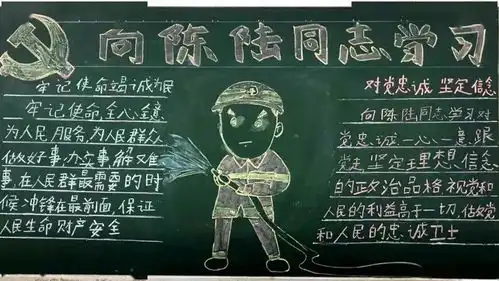 向陈陆同志学习
牢记使命竭诚为民
牢记使命全心全意
为人民服务,为人民群众
做好事,办实事,解难
事,在人民群最需要的时
候冲锋在最前面,保证
人民生命财产安全
对党忠诚 坚定信念
向陈陆同志学习对
党忠诚一心一意跟
党走,坚定理想信念
的政治品格,视党和
人民的利益高于一切,做党
和人民的忠诚卫士